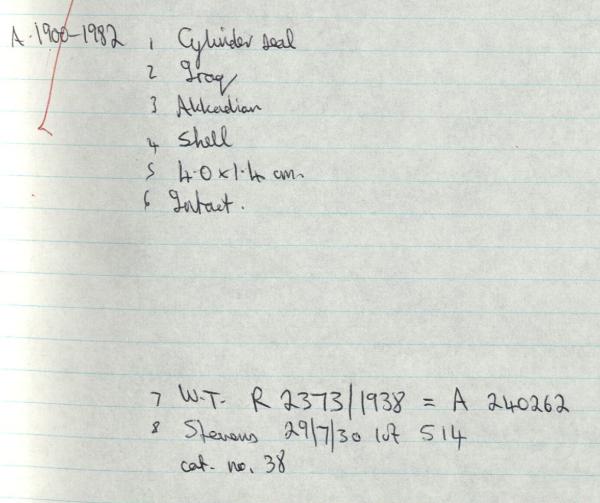 A.1900-1982 1 Cylinder seal
2 Iraq
3 Akkadian
4 Shell
5 4.0 x 1.4 cm.
6 Intact.
7 W.T. R 2373/1938 = A 240262
8 Stevens 29/7/30 lot 514
cat. no. 38